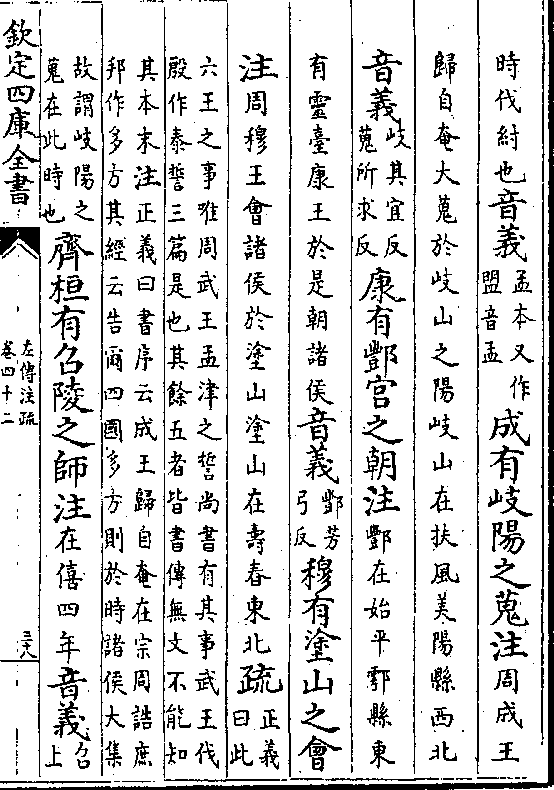 時代紂也音義孟本又作盟音孟成有岐陽之蒐注周成王
歸自奄大蒐於岐山之陽岐山在扶風美陽縣西北
音義岐其宜反蒐所求反康有酆宫之朝注酆在始平鄠縣東
有靈臺康王於是朝諸侯音義酆芳弓反穆有塗山之會
注周穆王會諸侯於塗山塗山在壽春東北疏正義曰此
六王之事唯周武王孟津之誓尚書有其事武王伐
殷作泰誓三篇是也其餘五者皆書傳無文不能知
其本末注正義曰書序云成王歸自奄在宗周誥庶
邦作多方其經云告爾四國多方則於時諸侯大集
故謂岐陽之
蒐在此時也
齊桓有召陵之師注在僖四年音義召上
欽定四庫全書
左傳注疏
卷四十二
三十八